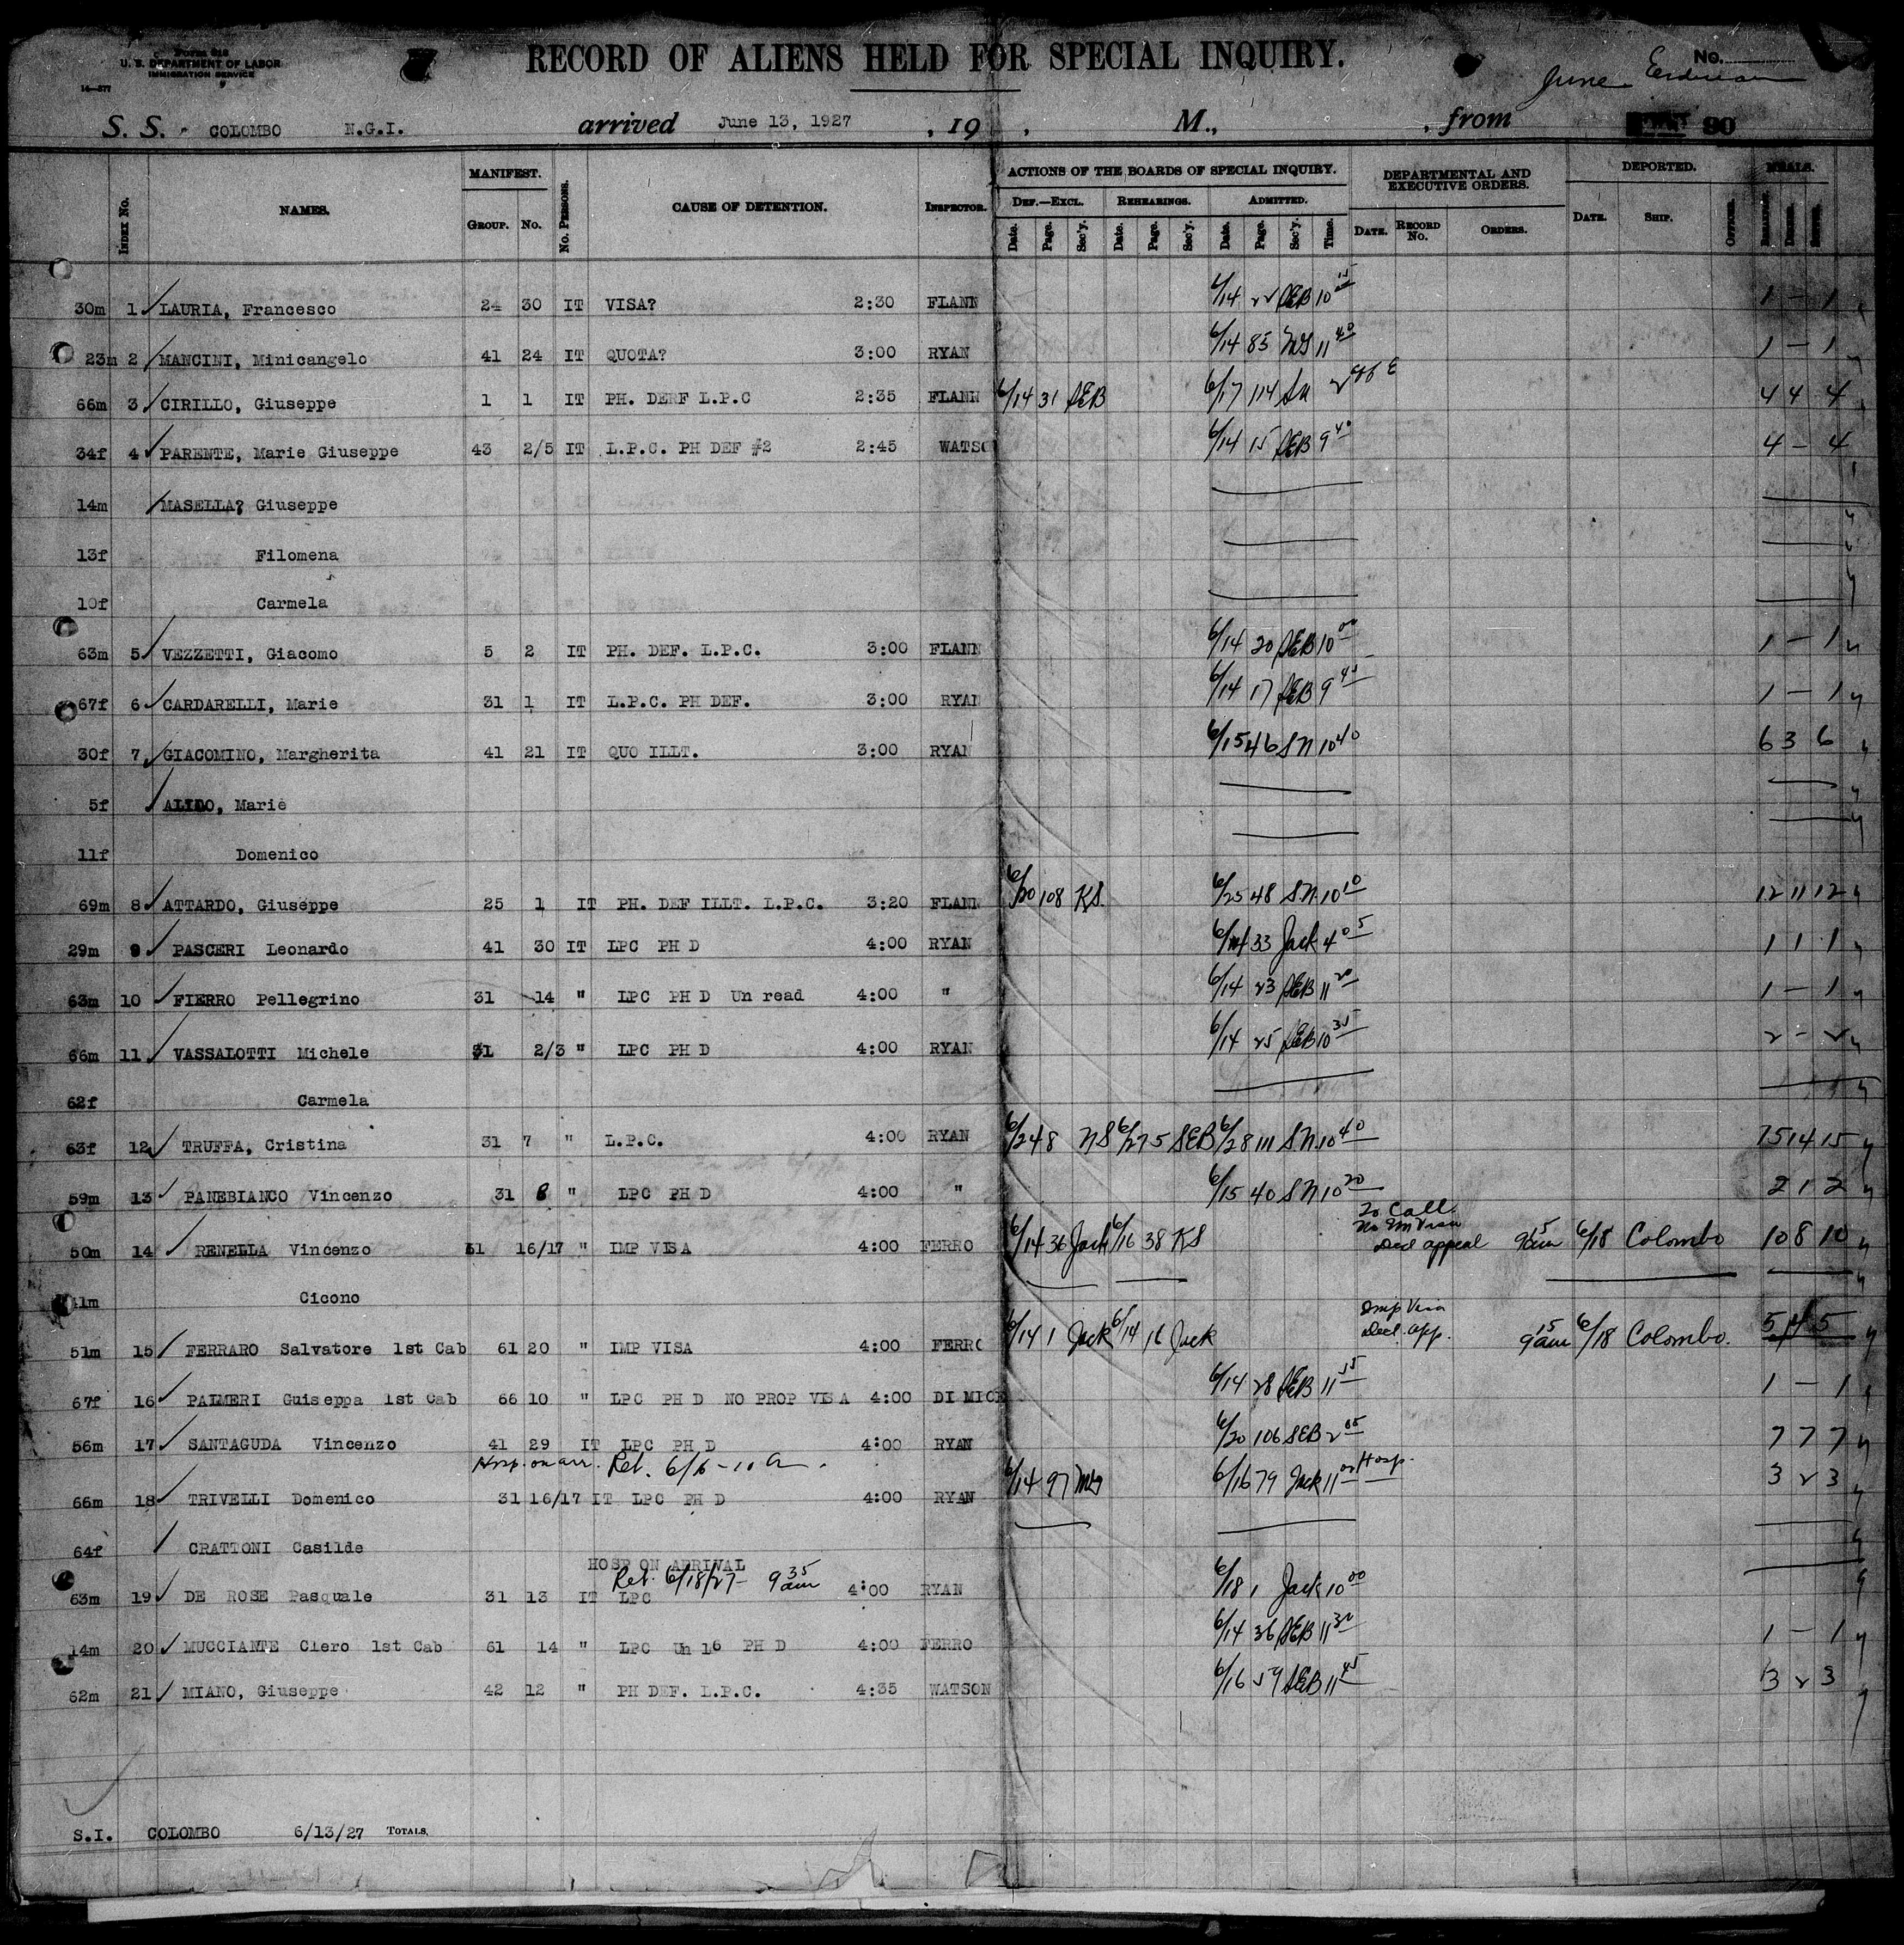 Form 618
U. S. DEPARTMENT OF LABOR
IMMIGRATION SERVICE
14—377
RECORD OF ALIENS HELD FOR SPECIAL INQUIRY.
No.
June
S. S. COLOMBO N.G.I. arrived June 13, 1927, 19 , M., , from 90
INDEX No. NAMES. MANIFEST. GROUP. No. No. PERSONS. CAUSE OF DETENTION. INSPECTOR. ACTIONS OF THE BOARDS OF SPECIAL INQUIRY. DEF.—EXCL. REHEARINGS. ADMITTED. DEPARTMENTAL AND EXECUTIVE ORDERS. DEPORTED. MEALS.
Date. Page. Sec'y. Date. Page. Sec'y. Date. Page. Sec'y. Time. DATE. RECORD No. ORDERS. DATE. SHIP.
30m 1 LAURIA, Francesco 24 30 IT VISA? 2:30 FLANN 6/14 22 SEB 10 1 – 1
23m 2 MANCINI, Minicangelo 41 24 IT QUOTA? 3:00 RYAN 6/14 85 11 40 1 – 1
66m 3 CIRILLO, Giuseppe 1 1 IT PH. DERF L.P.C 2:35 FLANN 6/14 31 SEB 6/17 114 4 4 4
34f 4 PARENTE, Marie Giuseppe 43 2/5 IT L.P.C. PH DEF #2 2:45 WATSO 6/14 15 SEB 9 40 4 – 4
14m MASELLA? Giuseppe
13f Filomena
10f Carmela
63m 5 VEZZETTI, Giacomo 5 2 IT PH. DEF. L.P.C. 3:00 FLANN 6/14 20 SEB 10 00 1 – 1
67f 6 CARDARELLI, Marie 31 1 IT L.P.C. PH DEF. 3:00 RYAN 6/14 17 SEB 9 45 1 – 1
30f 7 GIACOMINO, Margherita 41 21 IT QUO ILLT. 3:00 RYAN 6/15 46 SN 10 40 6 3 6
5f ALIDO, Marie
11f Domenico
69m 8 ATTARDO, Giuseppe 25 1 IT PH. DEF ILLT. L.P.C. 3:20 FLANN 6/20 108 KS. 6/25 48 S.N. 10 10 12 11 12
29m 9 PASCERI Leonardo 41 30 IT LPC PH D 4:00 RYAN 6/14 33 Jack 4 05 1 1 1
63m 10 FIERRO Pellegrino 31 14 " LPC PH D Un read 4:00 " 6/14 23 SEB 11 20 1 – 1
66m 11 VASSALOTTI Michele 31 2/3 " LPC PH D 4:00 RYAN 6/14 25 SEB 10 35 2 – 2
62f Carmela
63f 12 TRUFFA, Cristina 31 7 " L.P.C. 4:00 RYAN 6/24 8 NS 6/27 5 SEB 6/28 111 S.N. 10 40 15 14 15
59m 13 PANEBIANCO Vincenzo 31 8 " LPC PH D 4:00 " 6/15 40 SN 10 20 2 1 2
To Call
No Im Visa
50m 14 RENELLA Vincenzo 61 16/17 " IMP VISA 4:00 FERRO 6/14 36 Jack 6/16 38 KS Decl appeal 9 15 am 6/18 Colombo 10 8 10
11m Cicono
Imp Visa
51m 15 FERRARO Salvatore 1st Cab 61 20 " IMP VISA 4:00 FERRO 6/14 1 Jack 6/14 16 Jack Decl. app. 9 15 am 6/18 Colombo. 5 4 5
67f 16 PALMERI Guiseppa 1st Cab 66 10 " LPC PH D NO PROP VISA 4:00 DI MICE 6/14 28 SEB 11 55 1 – 1
56m 17 SANTAGUDA Vincenzo 41 29 IT LPC PH D 4:00 RYAN 6/20 106 SEB 2 05 7 7 7
Hosp. on arr. Rel. 6/16 – 11 a.
66m 18 TRIVELLI Domenico 31 16/17 IT LPC PH D 4:00 RYAN 6/14 97 6/16 79 Jack 11 Hosp. 3 2 3
64f CRATTONI Casilde
HOSP ON ARRIVAL
Rel. 6/18/27 – 9 35 am
63m 19 DE ROSE Pasquale 31 13 IT LPC 4:00 RYAN 6/18 1 Jack 10 00
14m 20 MUCCIANTE Clero 1st Cab 61 14 " LPC Un 16 PH D 4:00 FERRO 6/14 36 SEB 11 30 1 – 1
62m 21 MIANO, Giuseppe 42 12 " PH DEF. L.P.C. 4:35 WATSON 6/16 59 SEB 11 45 3 2 3
S.I. COLOMBO 6/13/27 TOTALS.